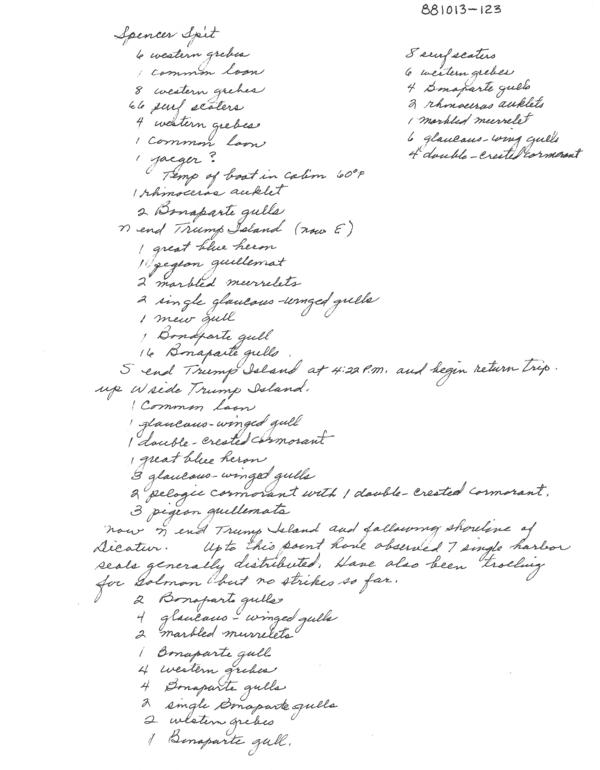 881013-123
Spencer Spit
6 western grebes
1 common loon
8 western grebes
66 surf scoters
4 western grebes
1 common loon
1 jaeger?
Temp of boat in cabin 60°F
1 rhinoceros auklet
2 Bonaparte gulls
N end Trump Island (now E)
1 great blue heron
11 pigeon guillemot
2 marbled murrelets
2 single glaucous-winged gulls
1 mew gull
1 Bonaparte gull
16 Bonaparte gulls.
S end Trump Island at 4:22 P.M. and begin return trip.
up W side Trump Island.
1 Common loon
1 glaucous-winged gull
1 double-crested cormorant
1 great blue heron
3 glaucous-winged gulls
2 pelagic cormorant with 1 double-crested cormorant.
3 pigeon guillemots
now N end Trump Island and following shoreline of
Decatur. Up to this point have observed 7 single harbor
seals generally distributed. Have also been trolling
for salmon but no strikes so far.
2 Bonaparte gulls
4 glaucous-winged gulls
2 marbled murrelets
1 Bonaparte gull
4 western grebes
4 Bonaparte gulls
2 single Bonaparte gulls
2 western grebes
1 Bonaparte gull.
8 surf scoters
6 western grebes
4 Bonaparte gulls
2 rhinoceros auklets
1 marbled murrelet
6 glaucous-wing gulls
4 double-crested cormorant